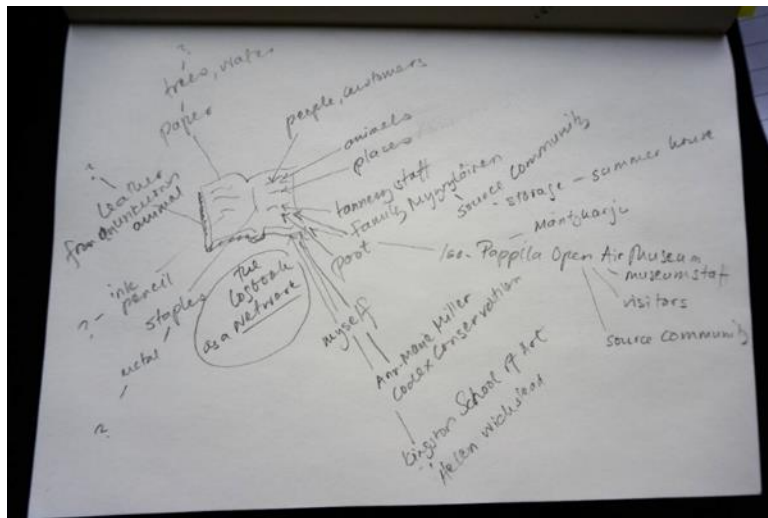 ?
trees, water
paper
people, customers
animals
places
tannery staff
family Myyryläinen
source community
- storage - summer house
past
Mäntyharju
Iso-Pappila Open Air Museum
museum staf
visitors
source community
?
leather
from
animal
ink
pencil
? -
staples
metal
?
The
Logbook
as a network
myself
Ann-Marie Miller
Codex Conservation
Kingston School of Art
Helen Wickstead